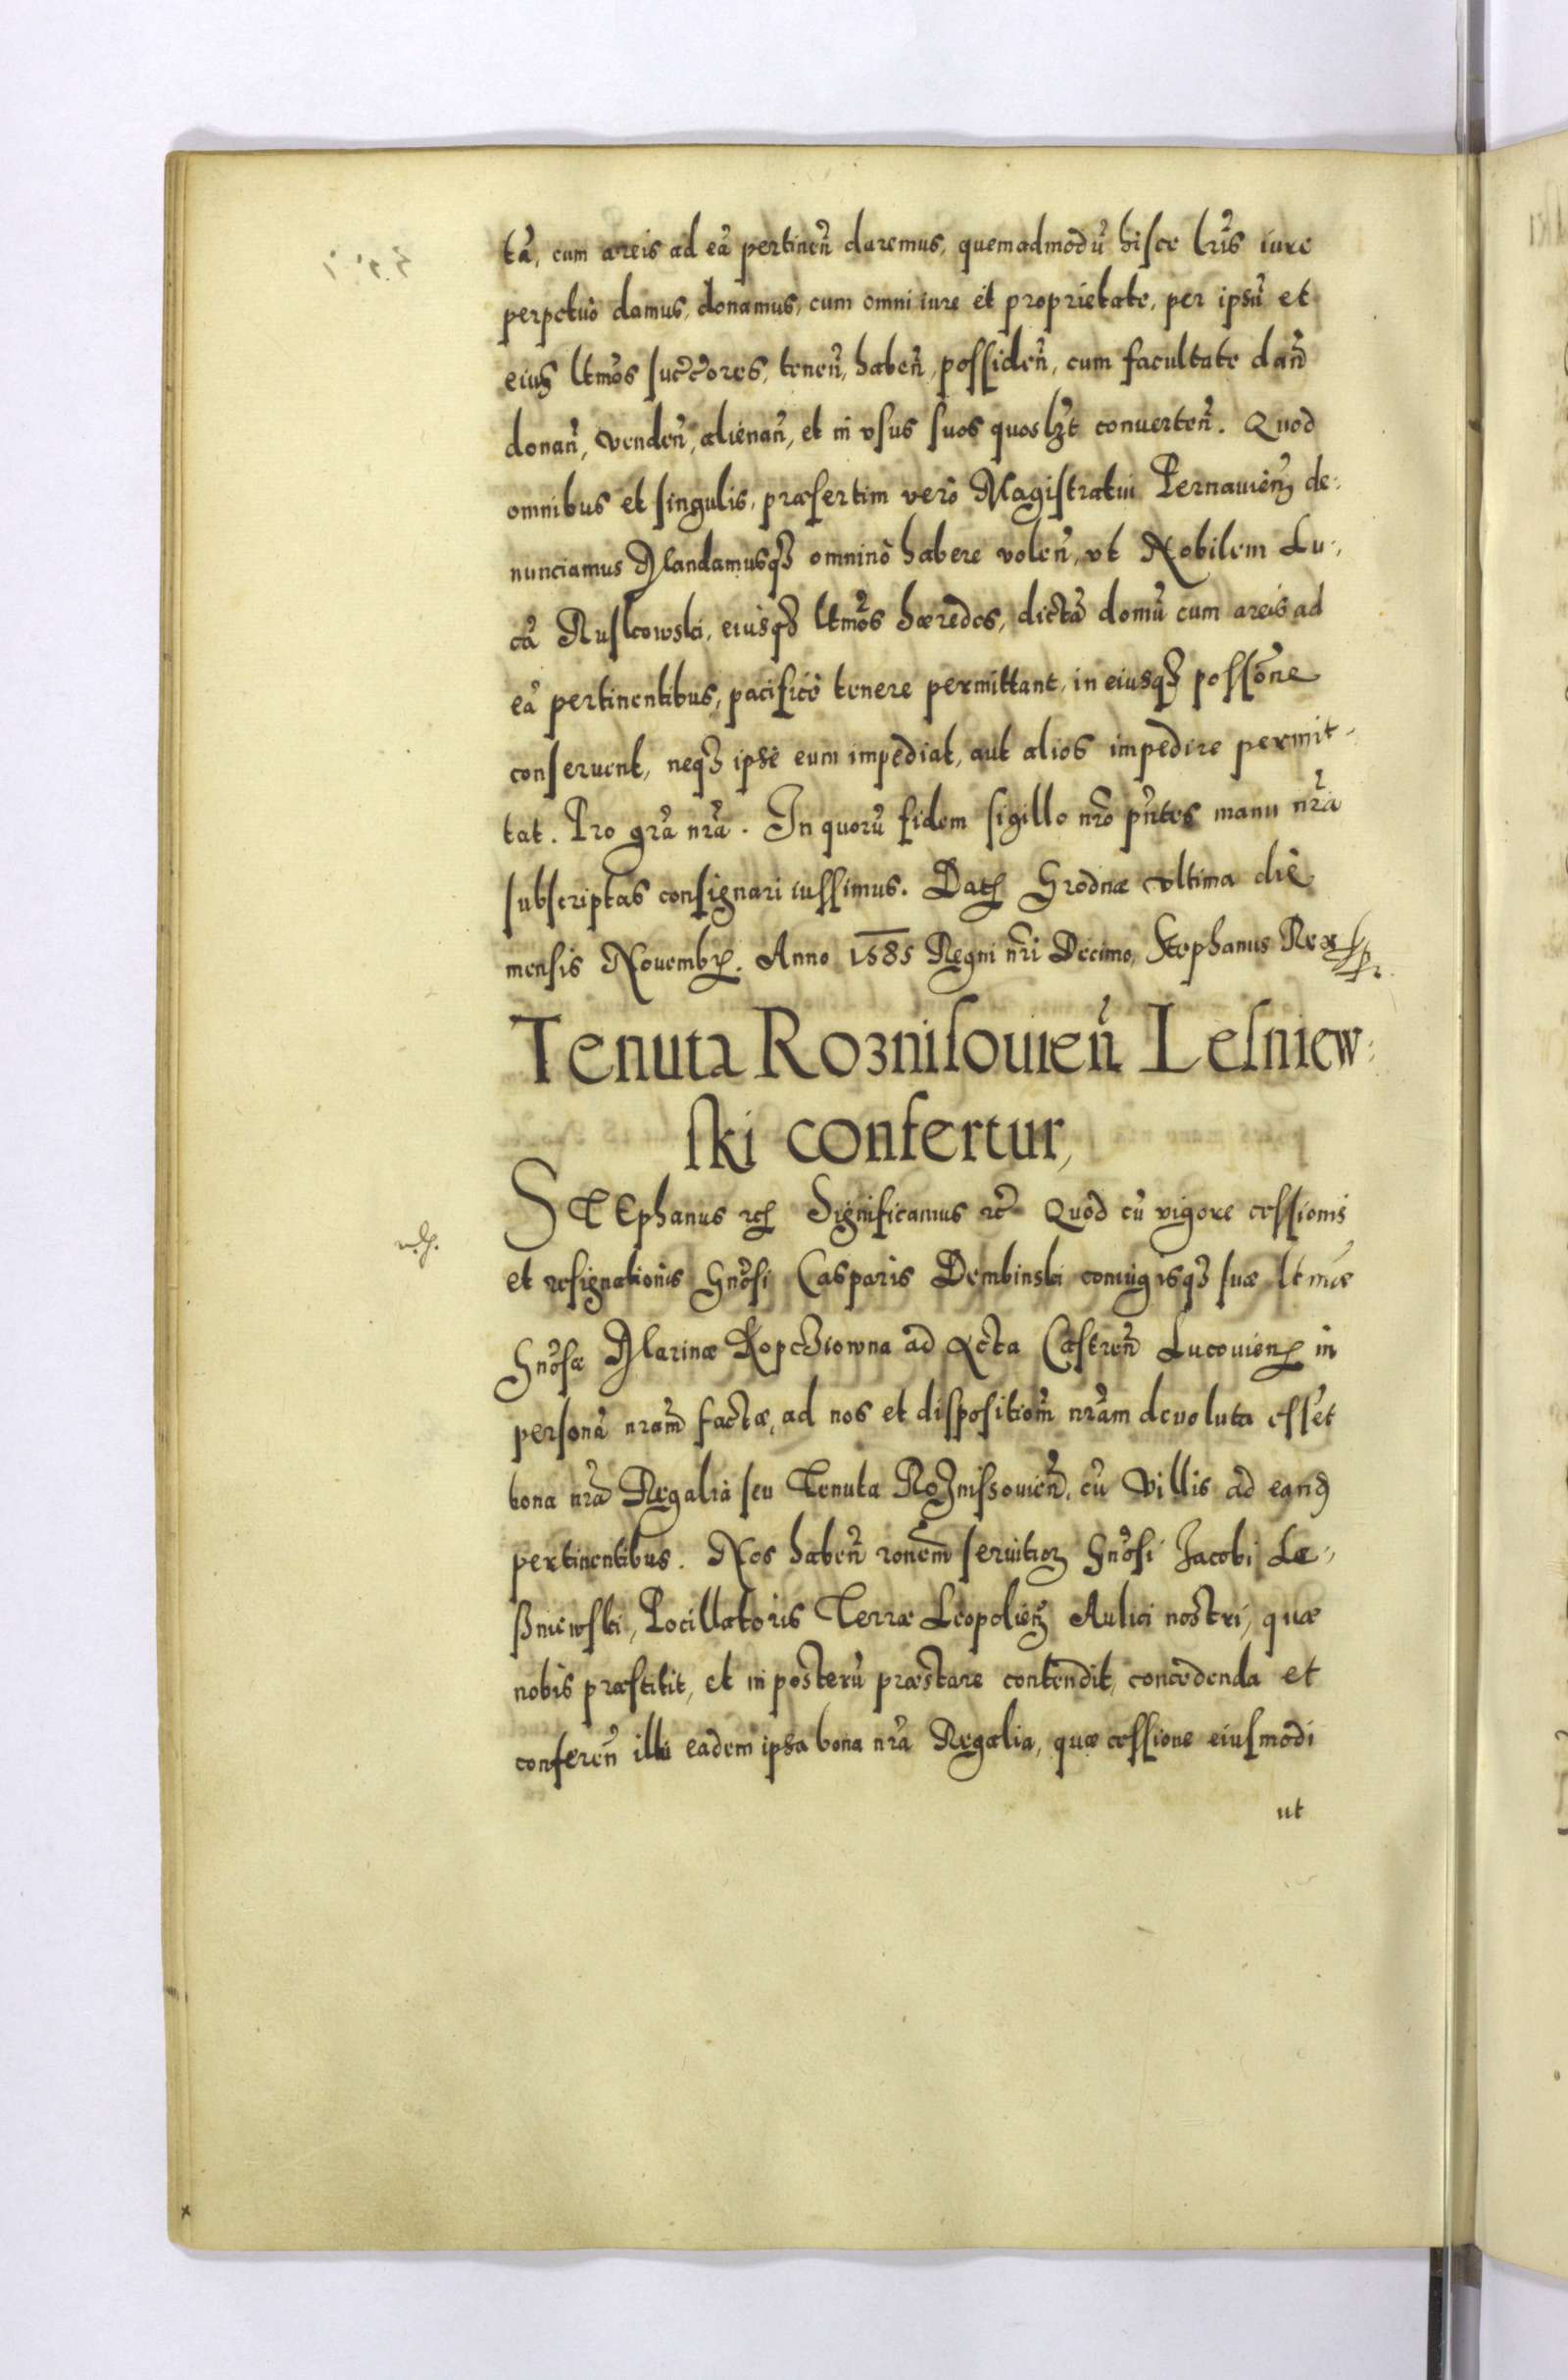 tã, cum areis ad eã pertineñ daremus, quemadmodũ hisce lr̃is iure
perpetuò damus, donamus, cum omni iure et proprietate, per ipsũ et
eius ltmõs succ̃ores, teneñ, habeñ, possideñ, cum facultate dañd
donañ, vendeñ, alienañ, et in vsus suos quoslꝫt conuerteñ. Quod
omnibus et singulis, præsertim verò Magistratui Pernauieñꝫ de:
nunciamus Mandamusqꝫ omninò habere voleñ, vt Nobilem Lu:,
cã Ruskowski, eiusqꝫ ltmõs hæredes, dictã domũ cum areis ad
eã pertinentibus, pacificè tenere permittant, in eiusqꝫ possõne
conseruent, neqꝫ ipse eum impediat, aut alios impedire permit-
tat. Pro gr̃a nr̃a. In quorũ fidem sigillo nr̃o pñtes manu nr̃a
subscriptas consignari iussimus. Datꝭ Grodnæ vltima die
mensis Nouembrꝭ. Anno 1585 Regni nr̃i Decimo, Stephanus Rex
Tenuta Roznisouieñ Lesniew:
ski confertur,
STEphanus ꝛcꝭ Significamus ꝛc̃ Quod cũ vigore cessionis
et resignationis Gnõsi Casparis Dembinski coniugisqꝫ suæ ltmæ
Gnõsæ Marinæ Kopcziowna ad Acta Castreñ Lucouienꝭ in
personã nr̃am factæ, ad nos et dispositiom̃ nr̃am deuoluta esset
bona nr̃a Regalia seu Tenuta Roznissouieñ, cũ Villis ad eandꝫ
pertinentibus. Nos habeñ rõnem seruitioꝝ Gnõsi Jacobi Le:,
ßniewski, Pocillatoris Terræ Leopolieñꝫ Aulici nostri, quæ
nobis præstitit, et in posterũ præstare contendit, concedenda et
confereñ illi eadem ipsa bona nr̃a Regalia, quæ cessione eiusmodi
ut